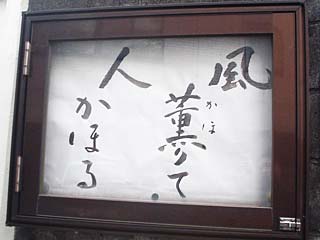 風
薫りて
かほ
人
かほる